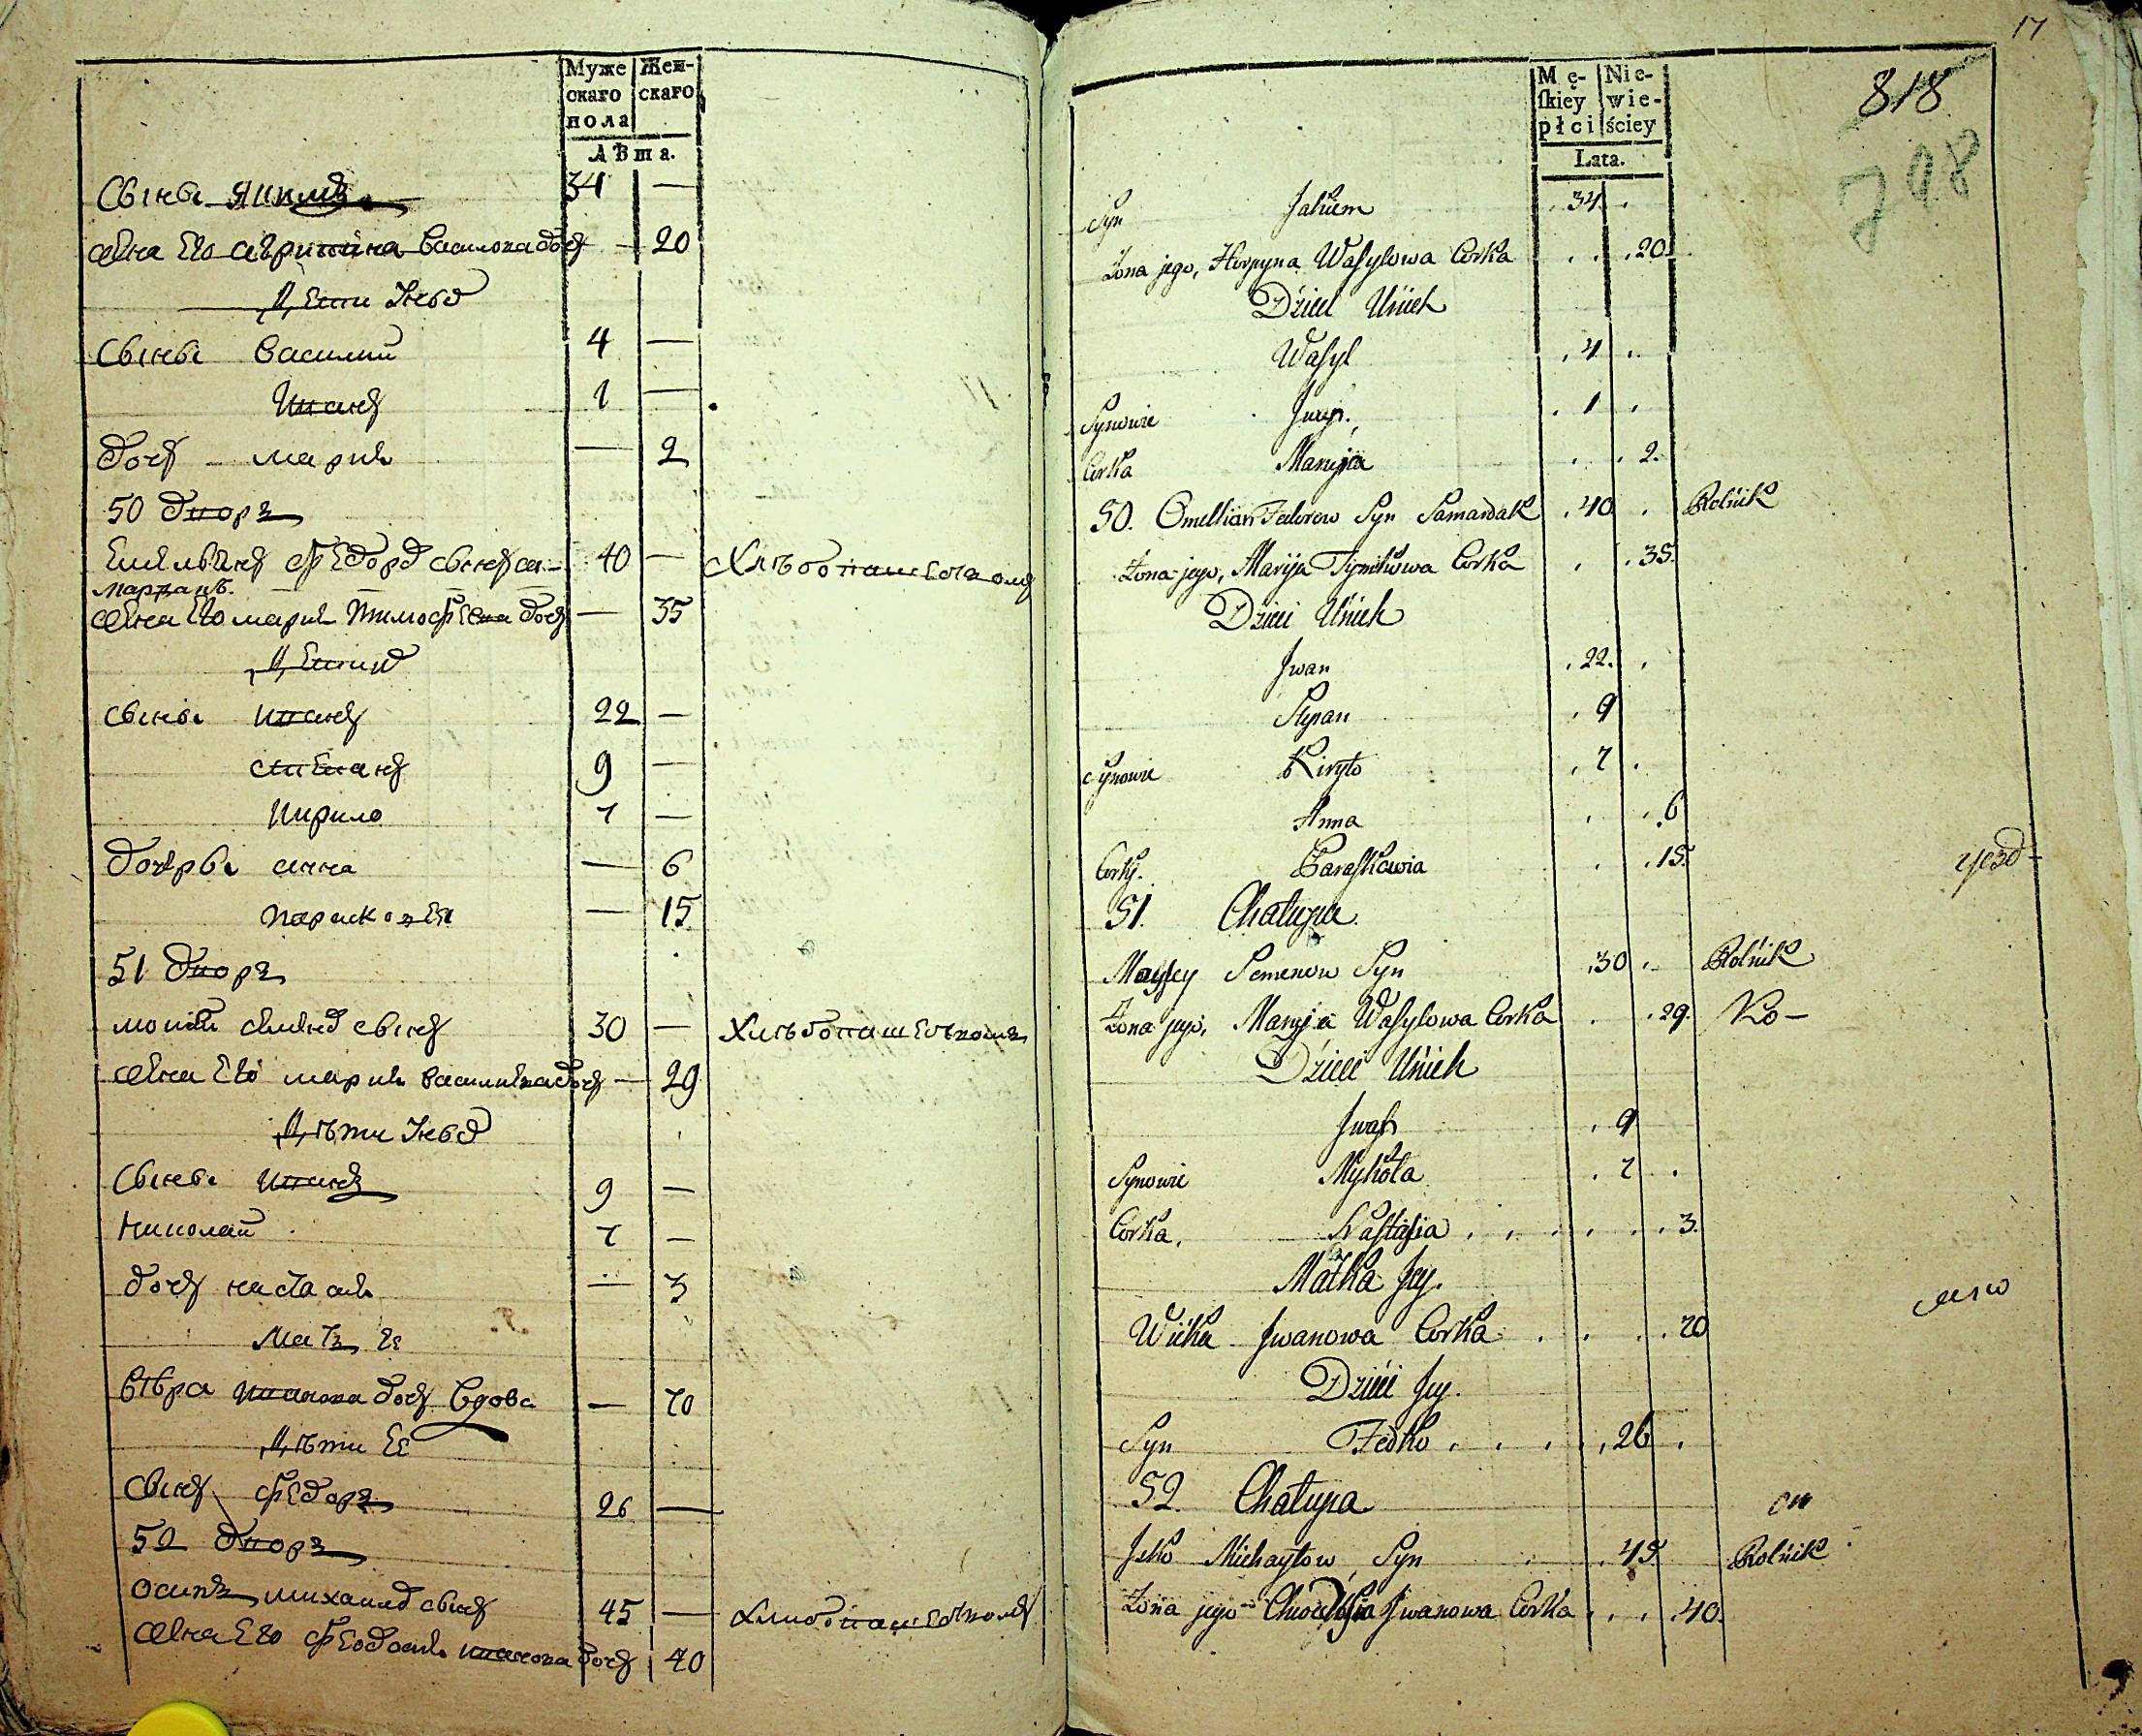 Муже Жен-
скаго скаго
пола
Лѣта.
Сынъ Якимъ 34 —
Жена Его Агрипина Василова дочь — 20
Дети Ихъ
Сыны Василий 4 —
Иванъ 1 —
дочь Мария — 2
50 дворъ
Емельянъ Федоровъ сынъ са- 40 — Хлѣбопашествомъ
Жена Его Мария Тимофеева дочь — 35
Дети
сыны Иванъ 22 —
Степанъ 9 —
Кирило 7 —
дочеры Анна — 6
Парасковея — 15
51 дворъ
Моисей Семеновъ сынъ 30 — Хлѣбопашествомъ
Жена Его Мария Василиева дочь — 29
Дѣти Ихъ
Сыны Иванъ 9 —
Николай 7 —
дочь Настасия — 3
Мать Ее
Вѣра Иванова дочь вдова — 70
Дѣти Ее
Сынъ Федоръ 26 —
52 дворъ
Осипъ Михайловъ сынъ 45 — Хлебопашествомъ
Жена Его Феодосия Иванова дочь 40
17
818
Mę- Nie-
ſkiey wie-
płci ściey
Lata.
Syn Jakim 34
Żona jego, Horpyna Wasylowa Corka 20
Dzieci Unich
Wasyl 4
Synowie Iwan 1
Corka Maryja 2
50. Omellian Fedorow Syn Samardak 40 Rolnik
Żona jego, Maryja Tymkowa Corka 35
Dzieci Unich
Jwan 22
Stepan 9
Synowie Kiryło 7
Anna 6
Corky. Paraskawia 15
51. Chałupa
Moysey Semenow Syn 30 Rolnik
Żona jego, Maryja Wasylowa Corka 29
Dzieci Unich
Jwaś 9
Synowie Mykoła 7
Corka, Nastasia 3
Matka Jey.
Wirka Jwanowa Corka 70
Dzieci Jey.
Syn Fedko 26
52. Chałupa
Joſko Michayłow Syn 45 Rolnik
Żona jego Chwedosia Jwanowa Corka 40